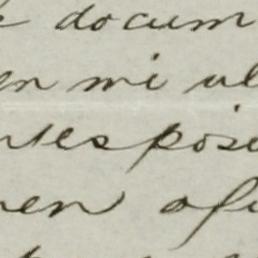 docum
en mi ul
ntes posi
men ofi